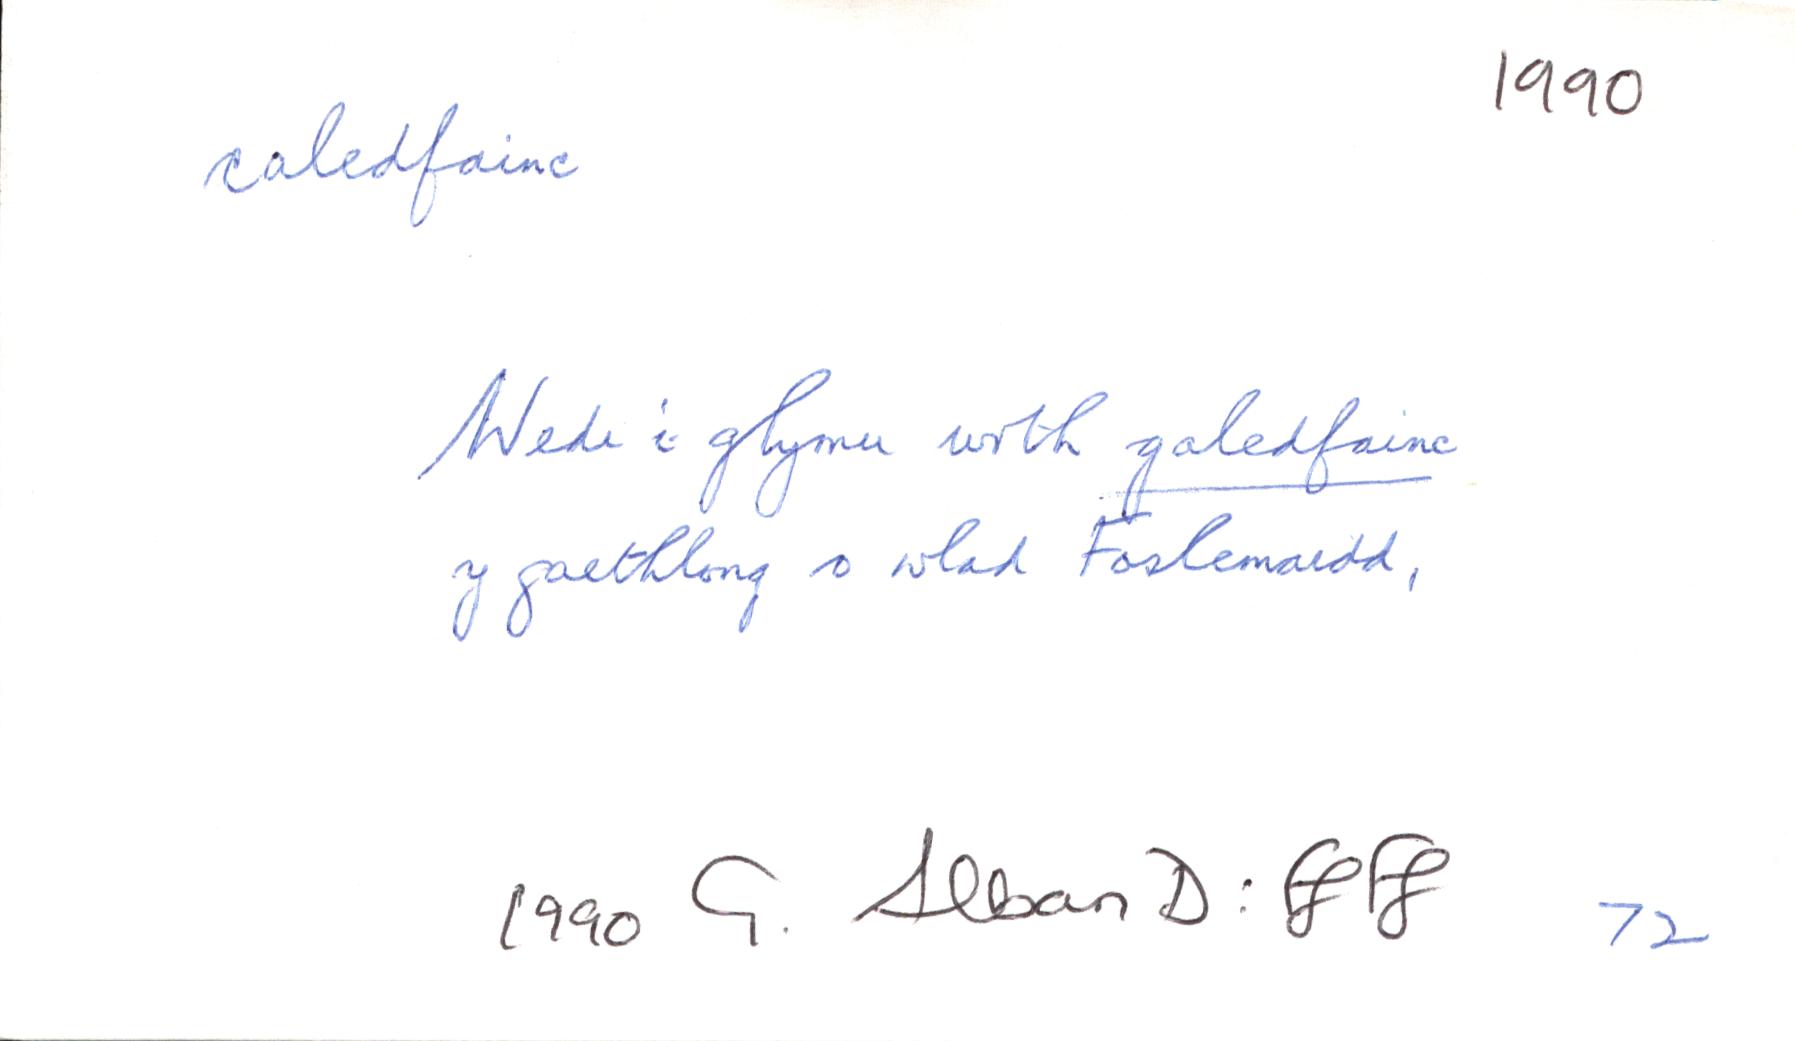 1990
caledfainc
Wedi i glymu wrth galedfainc
y gaethlong o wlad Foslemaidd,
1990 G. Alban D: FfFf 72